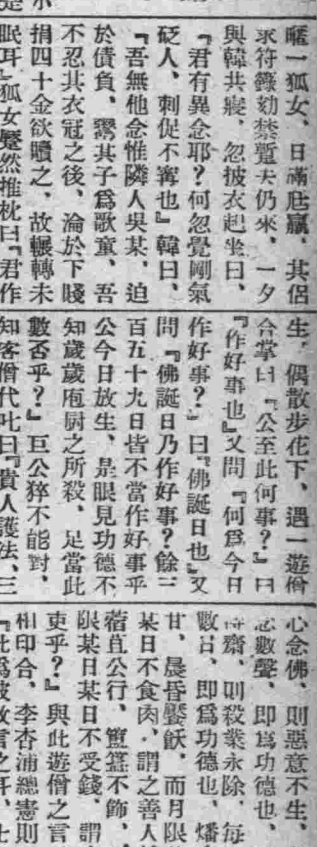 暱一狐女、日漸尪羸、其侶
求符籙劾禁暫去仍來、一夕
與韓共寢、忽披衣起坐曰、
『君有異念耶?何忽覺剛氣
砭人、刺促不甯也』韓曰、
『吾無他念惟隣人吳某、迫
於債負、鬻其子爲歌童、吾
不忍其衣冠之後、淪於下賤
捐四十金欲贖之、故輾轉未
眠耳』狐女蹙然推枕曰『君作
生、偶散步花下、遇一遊僧
合掌曰『公至此何事?』曰
『作好事也』又問『何爲今日
作好事?』曰『佛誕日也』又
問『佛誕日乃作好事?餘三
百五十九日皆不當作好事乎
公今日放生、是眼見功德不
知歲歲庖厨之所殺、足當此
數否乎?』巨公猝不能對、
知客僧代叱曰『貴人護法、三
心念佛、則惡意不生、
念數聲、即爲功德也、
持齋、則殺業永除、每
數日、即爲功德也、燔
甘、晨昏饜飫、而月限
某日不食肉、謂之善人
蓿苴公行、簠簋不飾、
限某日某日不受錢、謂
吏乎?』與此遊僧之言
相印合、李杏浦總憲則
『此爲彼敎言之耳、士